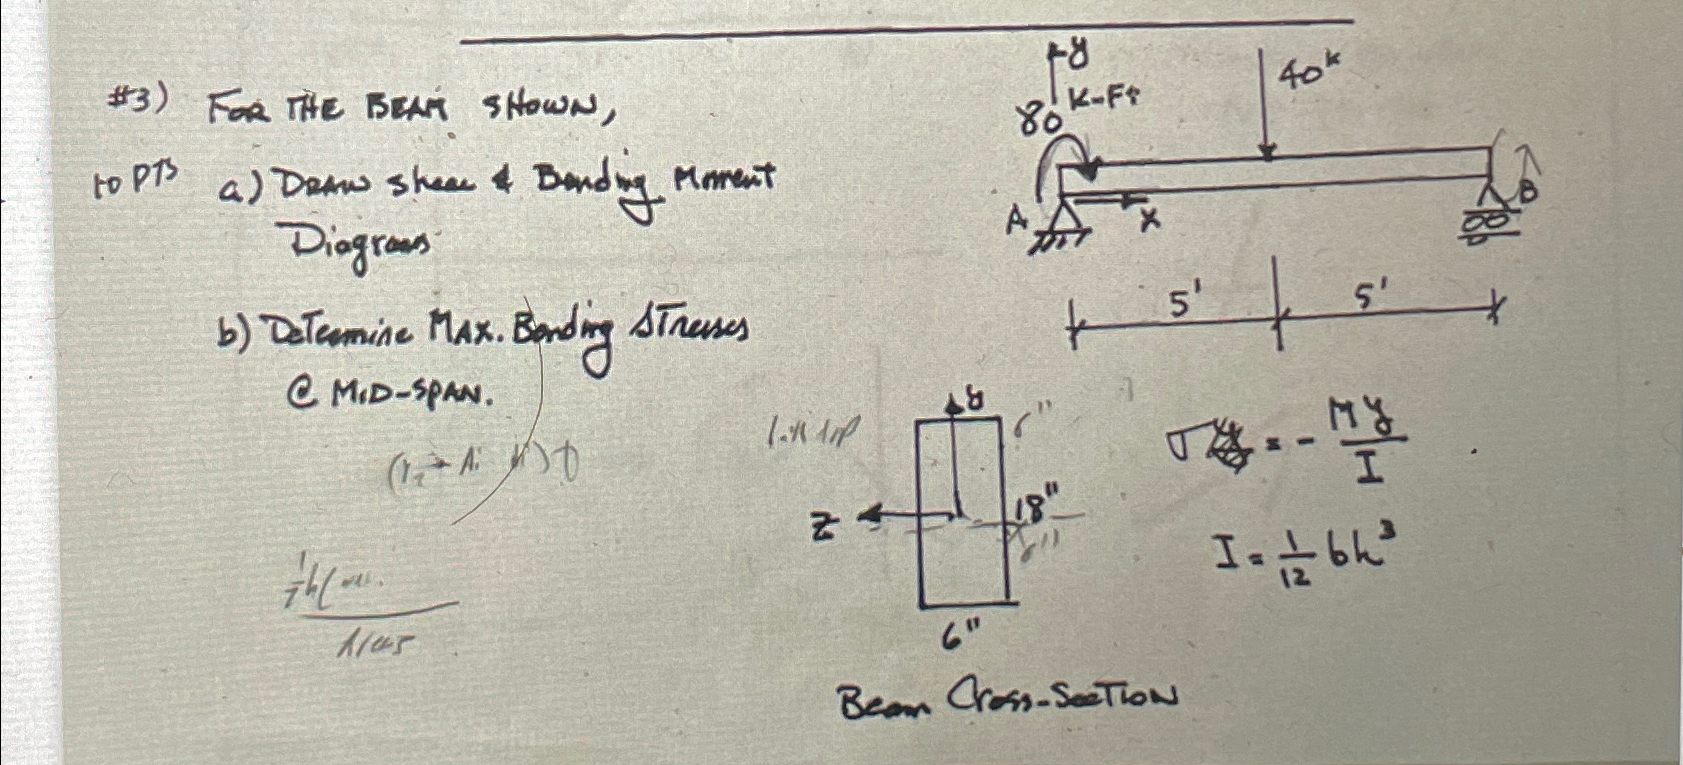 #3) FOR THE BEAM SHOWN,
10 PTS a) DRAW Shear & Bending Moment
Diagrams
b) Determine MAX. Bending Stresses
@ MID-SPAN.
y
80 K-FT
40k
A
x
B
5' 5'
y
6"
Z
18"
6"
Beam Cross-Section
σ = - My/I
I = 1/12 bh³